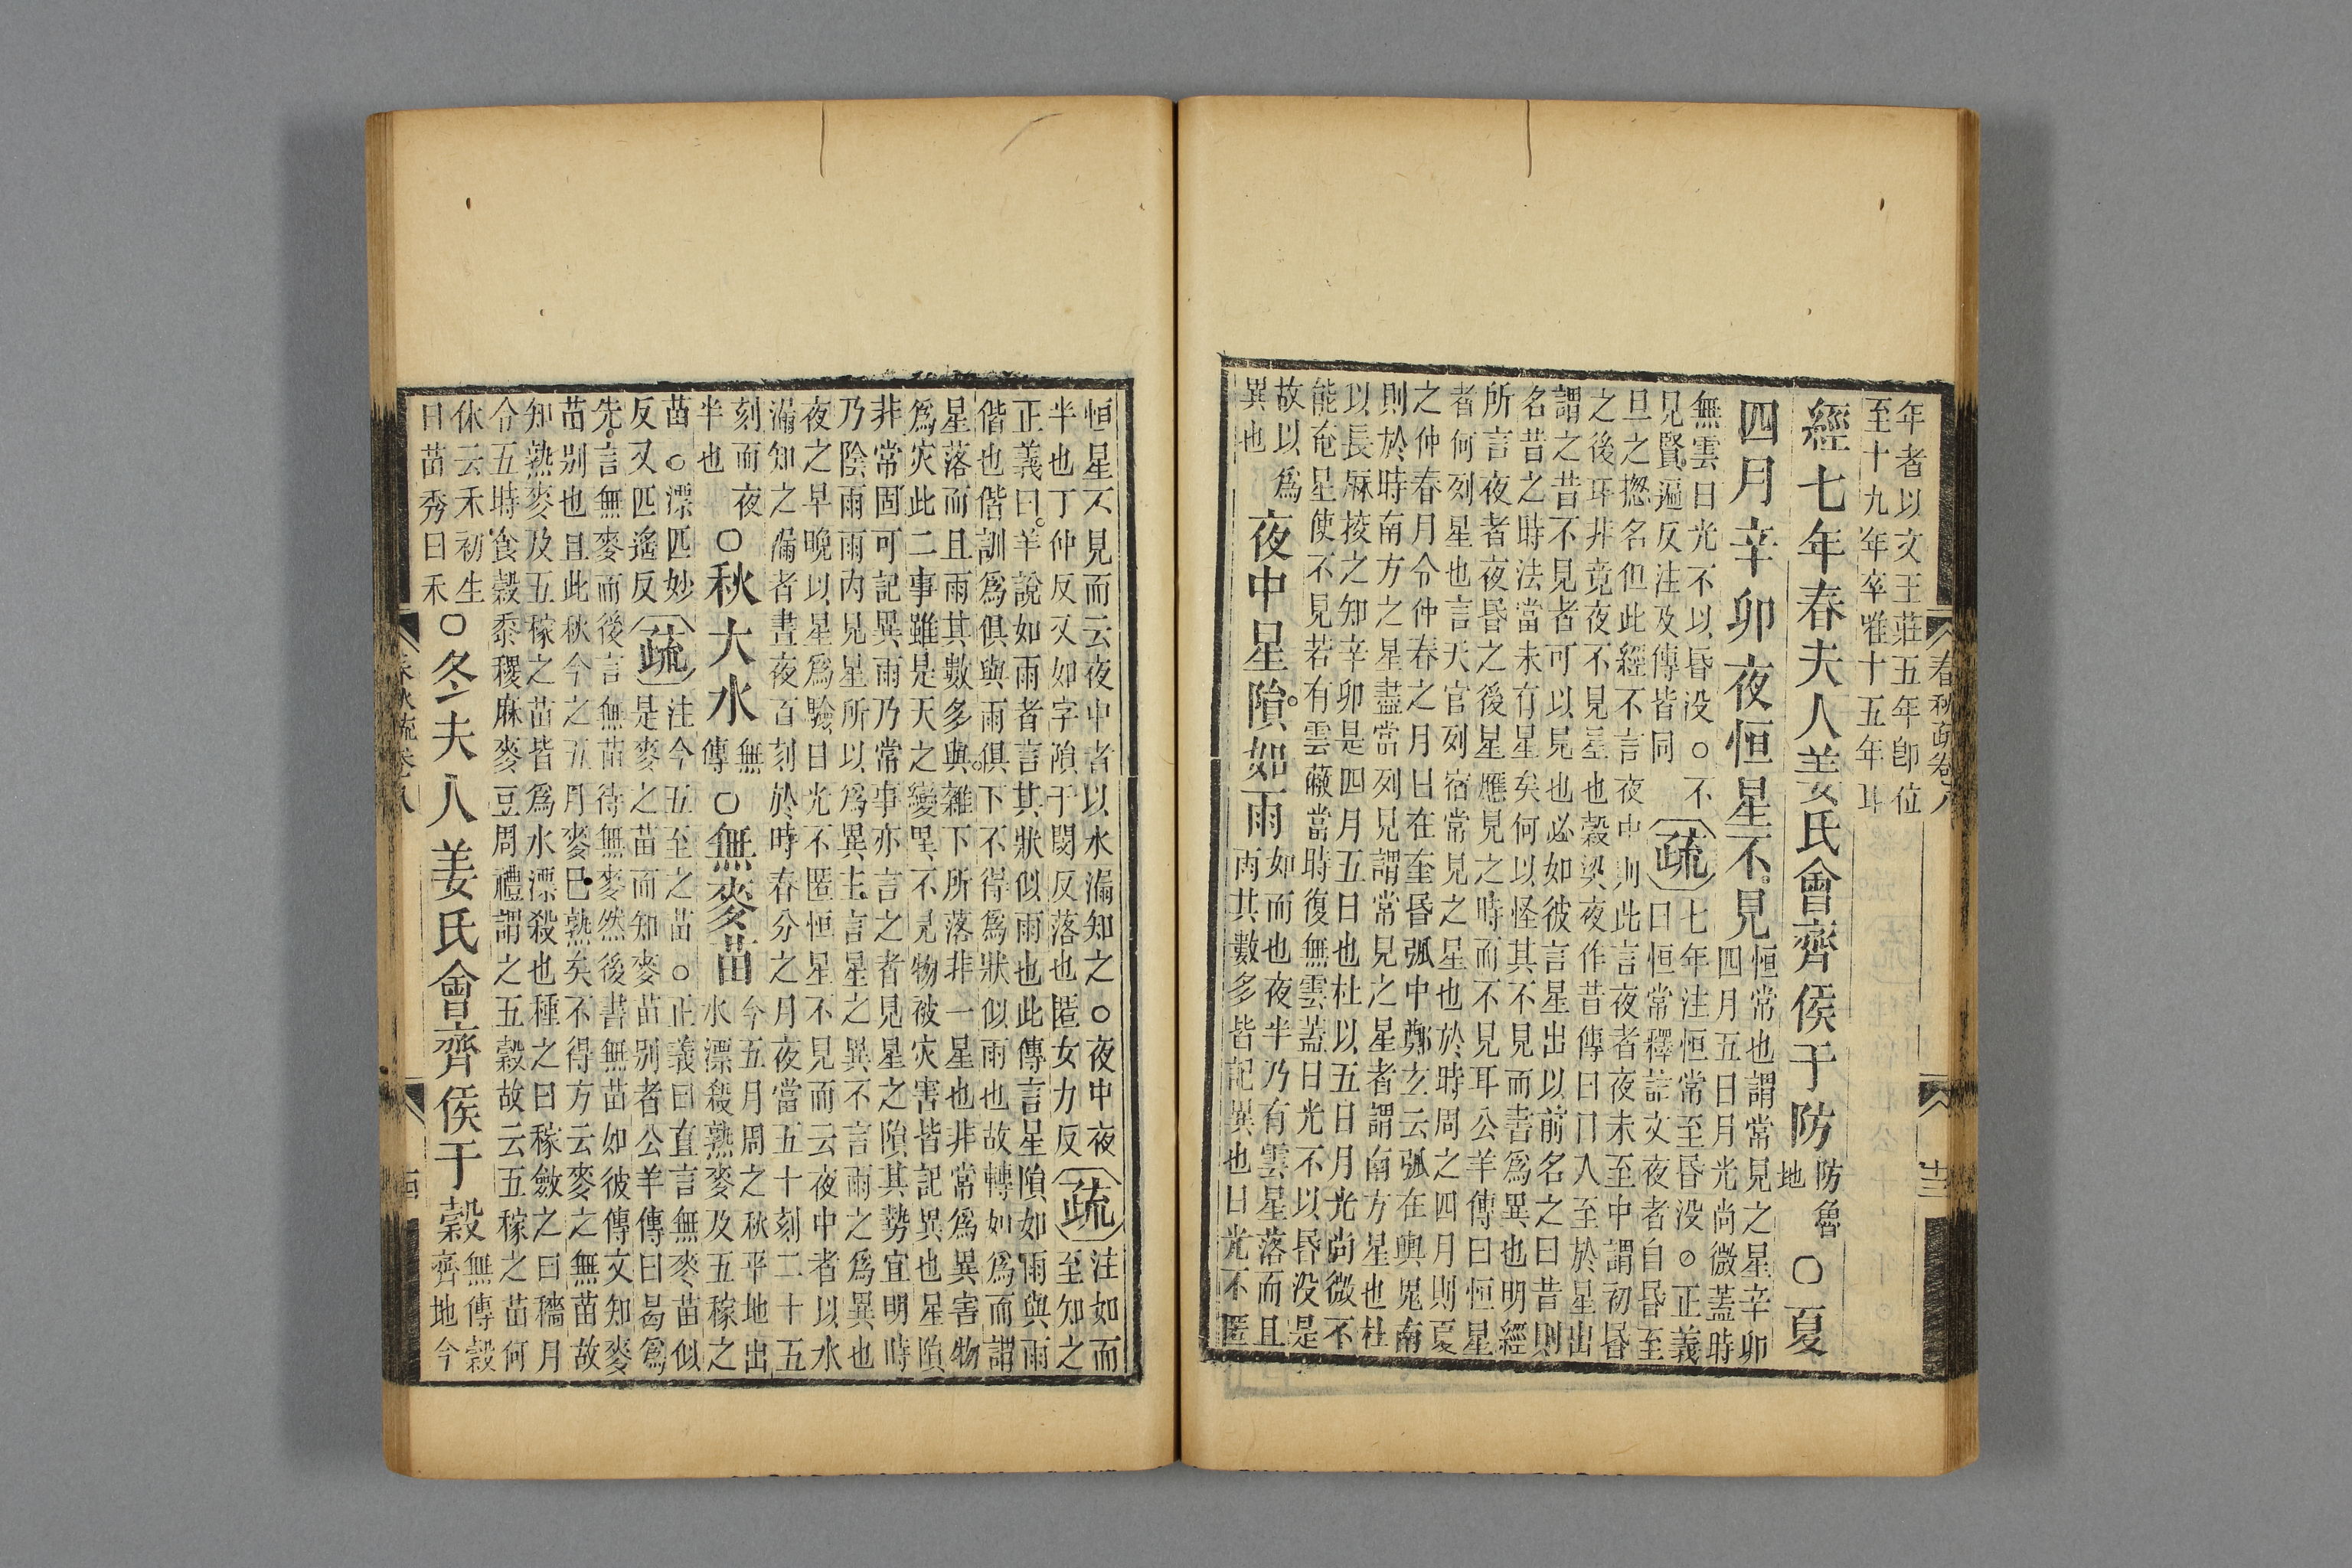 春秋疏卷八
十三
年者以文王莊五年卽位
至十九年卒唯十五年耳
經七年春夫人姜氏會齊侯于防
防魯
地
○夏
四月辛卯夜恒星不見
恒常也謂常見之星辛卯
四月五日月光尚微蓋時
無雲日光不以昏没○不
見賢遍反注及傳皆同
疏
七年注恒常至昏没○正義
曰恒常釋詁文夜者自昏至
旦之揔名但此經不言夜中則此言夜者夜未至中謂初昏
之後耳非竟夜不見星也榖梁夜作昔傳曰日入至於星出
謂之昔不見者可以見也必如彼言星出以前名之曰昔則
名昔之時法當未有星矣何以怪其不見而書爲異也明經
所言夜者夜昏之後星應見之時而不見耳公羊傳曰恒星
者何列星也言天官列宿常見之星也於時周之四月則夏
之仲春月令仲春之月日在奎昏弧中鄭玄云弧在輿鬼南
則於時南方之星盡當列見謂常見之星者謂南方星也杜
以長厤挍之知辛卯是四月五日也杜以五日月光尚微不
能奄星使不見若有雲蔽當時復無雲蓋日光不以昏没是
故以爲
異也
夜中星隕如雨
如而也夜半乃有雲星落而且
雨其數多皆記異也日光不匿
恒星不見而云夜中者以水漏知之○夜中夜
半也丁仲反又如字隕于閔反落也匿女力反
疏
注如而
至知之
正義曰羊說如雨者言其狀似雨也此傳言星隕如雨與雨
偕也偕訓爲俱與雨俱下不得爲狀似雨也故轉如爲而謂
星落而且雨其數多與雜下所落非一星也非常爲異害物
爲灾此二事雖是天之變異不見物被灾害皆記異也星隕
非常固可記異雨乃常事亦言之者見星之隕其勢宜明時
乃陰雨雨内見星所以爲異主言星之異不言雨之爲異也
夜之早晚以星爲驗日光不匿恒星不見而云夜中者以水
漏知之漏者晝夜百刻於時春分之月夜當五十刻二十五
刻而夜
半也
○秋大水
無
傳
○無麥苗
今五月周之秋平地出
水漂殺熟麥及五稼之
苗○漂匹妙
反又匹遙反
疏
注今五至之苗○正義曰直言無麥苗似
是麥之苗而知麥苗别者公羊傳曰曷爲
先言無麥而後言無苗待無麥然後書無苗如彼傳文知麥
苗别也且此秋今之五月麥巳熟矣不得方云麥之無苗故
知熟麥及五稼之苗皆爲水漂殺也種之曰稼斂之曰穡月
令五時食榖黍稷麻麥豆周禮謂之五榖故云五稼之苗何
休云禾初生
曰苗秀曰禾
○冬夫人姜氏會齊侯于榖
無傳榖
齊地今
春秋疏卷八